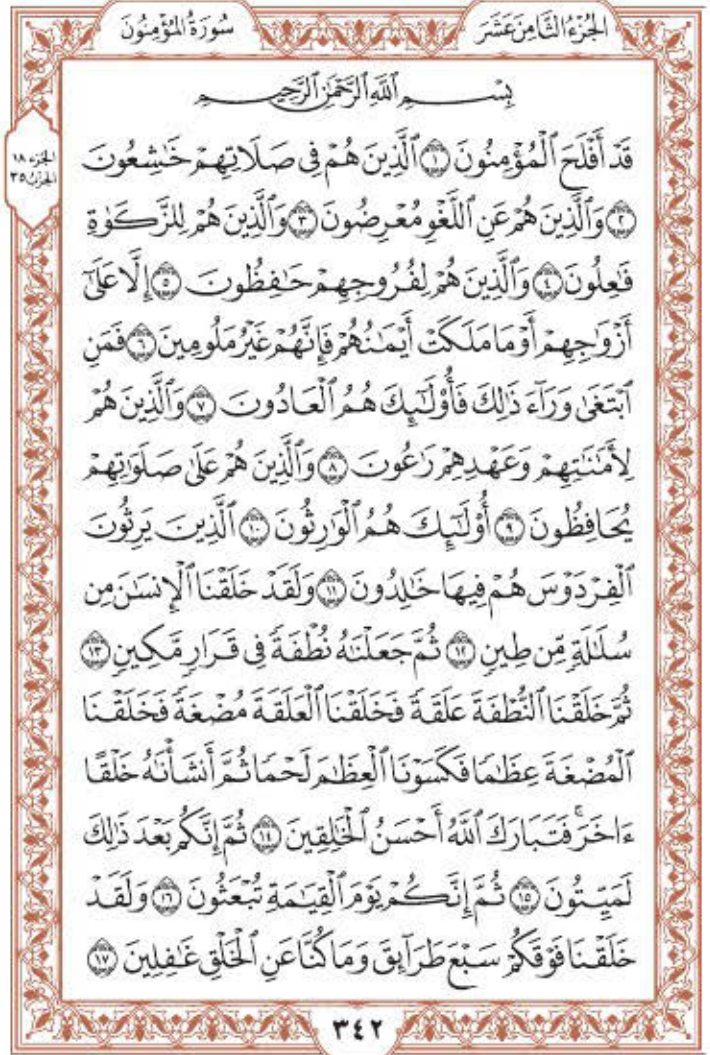 الجُزْءُ الثَّامِنَ عَشَرَ سُورَةُ المُؤْمِنُونَ
بِسْمِ ٱللَّهِ ٱلرَّحْمَٰنِ ٱلرَّحِيمِ
الجزء ١٨
الحزب ٣٥
قَدْ أَفْلَحَ ٱلْمُؤْمِنُونَ ١ ٱلَّذِينَ هُمْ فِى صَلَاتِهِمْ خَٰشِعُونَ
٢ وَٱلَّذِينَ هُمْ عَنِ ٱللَّغْوِ مُعْرِضُونَ ٣ وَٱلَّذِينَ هُمْ لِلزَّكَوٰةِ
فَٰعِلُونَ ٤ وَٱلَّذِينَ هُمْ لِفُرُوجِهِمْ حَٰفِظُونَ ٥ إِلَّا عَلَىٰٓ
أَزْوَٰجِهِمْ أَوْ مَا مَلَكَتْ أَيْمَٰنُهُمْ فَإِنَّهُمْ غَيْرُ مَلُومِينَ ٦ فَمَنِ
ٱبْتَغَىٰ وَرَآءَ ذَٰلِكَ فَأُو۟لَٰٓئِكَ هُمُ ٱلْعَادُونَ ٧ وَٱلَّذِينَ هُمْ
لِأَمَٰنَٰتِهِمْ وَعَهْدِهِمْ رَٰعُونَ ٨ وَٱلَّذِينَ هُمْ عَلَىٰ صَلَوَٰتِهِمْ
يُحَافِظُونَ ٩ أُو۟لَٰٓئِكَ هُمُ ٱلْوَٰرِثُونَ ١٠ ٱلَّذِينَ يَرِثُونَ
ٱلْفِرْدَوْسَ هُمْ فِيهَا خَٰلِدُونَ ١١ وَلَقَدْ خَلَقْنَا ٱلْإِنسَٰنَ مِن
سُلَٰلَةٍ مِّن طِينٍ ١٢ ثُمَّ جَعَلْنَٰهُ نُطْفَةً فِى قَرَارٍ مَّكِينٍ ١٣
ثُمَّ خَلَقْنَا ٱلنُّطْفَةَ عَلَقَةً فَخَلَقْنَا ٱلْعَلَقَةَ مُضْغَةً فَخَلَقْنَا
ٱلْمُضْغَةَ عِظَٰمًا فَكَسَوْنَا ٱلْعِظَٰمَ لَحْمًا ثُمَّ أَنشَأْنَٰهُ خَلْقًا
ءَاخَرَ ۚ فَتَبَارَكَ ٱللَّهُ أَحْسَنُ ٱلْخَٰلِقِينَ ١٤ ثُمَّ إِنَّكُم بَعْدَ ذَٰلِكَ
لَمَيِّتُونَ ١٥ ثُمَّ إِنَّكُمْ يَوْمَ ٱلْقِيَٰمَةِ تُبْعَثُونَ ١٦ وَلَقَدْ
خَلَقْنَا فَوْقَكُمْ سَبْعَ طَرَآئِقَ وَمَا كُنَّا عَنِ ٱلْخَلْقِ غَٰفِلِينَ ١٧
٣٤٢